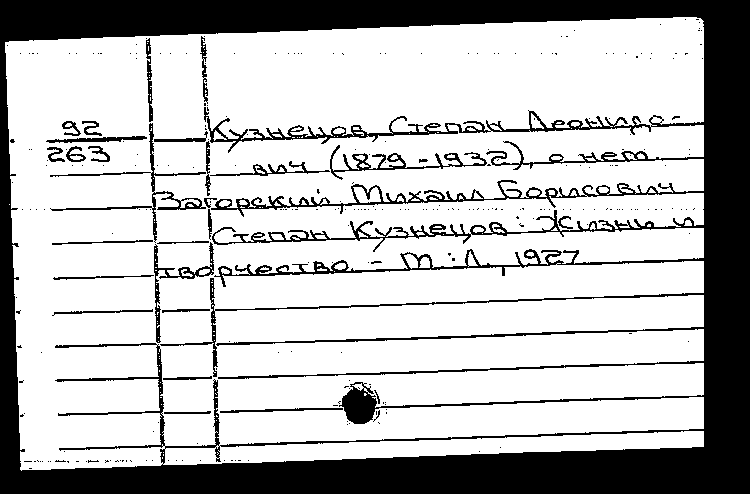 92 Кузнецов, Степан Леонидо-
263 вич (1879-1932), о нем.
Загорский, Михаил Борисович
Степан Кузнецов: Жизнь и
творчество. - М.:Л., 1927